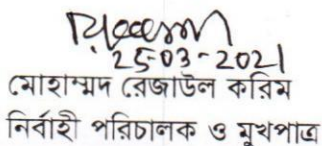 25-03-2021
মোহাম্মদ রেজাউল করিম
নির্বাহী পরিচালক ও মুখপাত্র